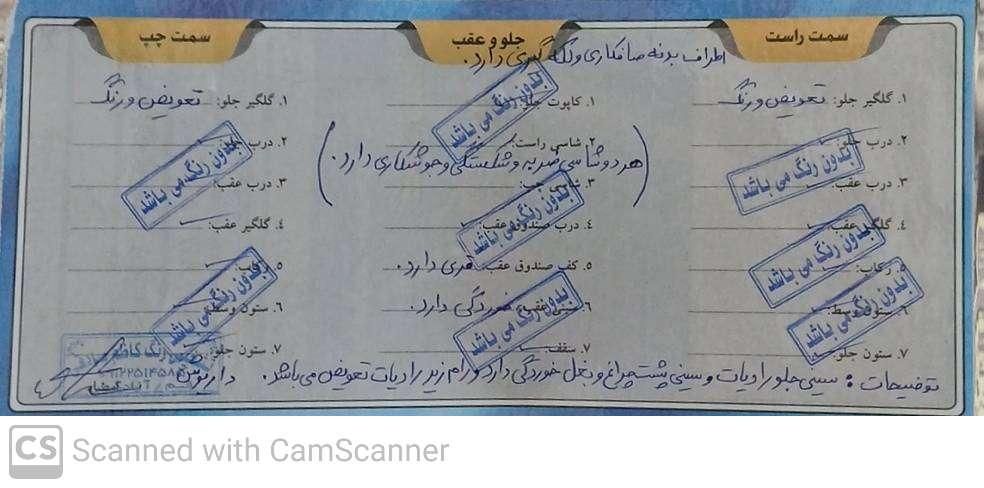 سمت راست
جلو و عقب
سمت چپ
اطراف بدنه صافکاری و لکه گیری دارد.
۱. گلگیر جلو: تعویض و رنگ
۲. درب جلو:
۳. درب عقب:
۴. گلگیر عقب:
۵. رکاب:
۶. ستون وسط:
۷. ستون جلو:
بدون رنگ می باشد
بدون رنگ می باشد
بدون رنگ می باشد
۱. کاپوت جلو:
۲. شاسی راست:
(هر دو شاسی ضربه و شکستگی و جوشکاری دارد.)
۳. شاسی چپ:
۴. درب صندوق عقب:
۵. کف صندوق عقب: فری دارد.
۶. سینی عقب: خوردگی دارد.
۷. سقف:
بدون رنگ می باشد
بدون رنگ می باشد
بدون رنگ می باشد
۱. گلگیر جلو: تعویض و رنگ
۲. درب جلو:
۳. درب عقب:
۴. گلگیر عقب:
۵. رکاب:
۶. ستون وسط:
۷. ستون جلو:
بدون رنگ می باشد
بدون رنگ می باشد
توضیحات: سینی جلو رادیات و سینی پشت چراغ و بغل خوردگی دارد و رام زیر رادیات تعویض می باشد.
CS Scanned with CamScanner